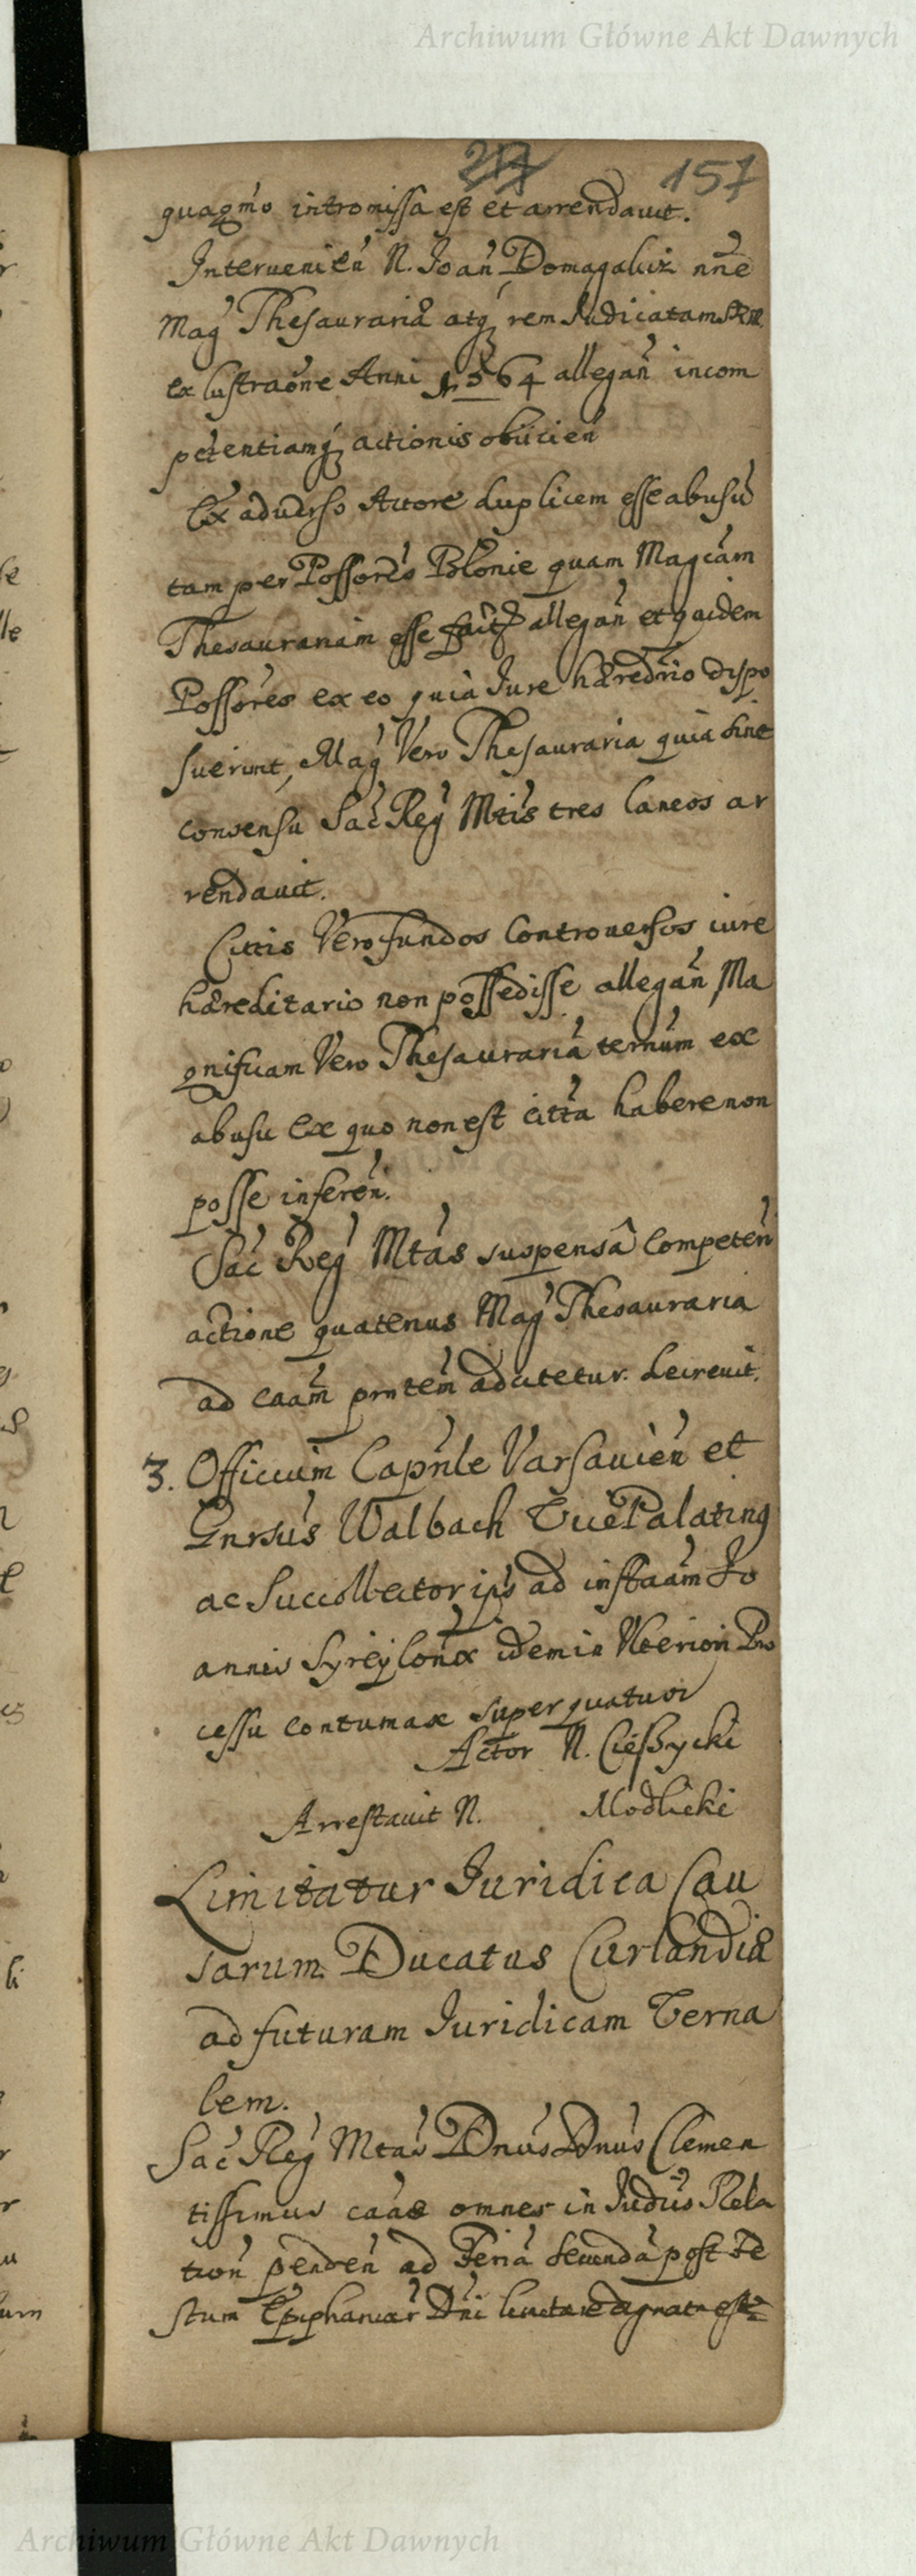 Archiwum Główne Akt Dawnych
217 157
intromissa est et arrendavit.
Intervenien N. Joan Domagalicz nne
Mag Thesauraria atq rem Iudicatam
ex lustraone Anni 1564 allegan incom
petentiamq actionis obiicien
Ex adverso Actore duplicem esse abusu
tam per Possores Polonie quam Magcam
Thesaurariam esse allegan et quidem
Possores ex eo quia Iure hæredrio dispo
suerint, Mag Vero Thesauraria quia sine
consensu Sac Reg Mtis tres laneos ar
rendavit.
Cittis Vero fundos Controversos iure
hæreditario non possedisse allegan Ma
gnificam Vero Thesauraria ternum ex
abusu Ex quo non est citta habere non
posse inferen.
Sac Reg Mtas suspensâ Competen
actione quatenus Mag Thesauraria
ad caam prntem adcitetur. decrevit.
3. Officium Capnle Varsavien et
Gnrsus Walbach Palatinq
ac Succollector ips ad instaam Jo
annis idem in Ulteriori Pro
cessu contumax super quatuor
Actor N. Cieszycki
Arrestavit N. Modlicki
Limitatur Iuridica Cau
sarum Ducatus Curlandiæ
ad futuram Iuridicam Terna
lem.
Sac Reg Mtas Dnus Dnus Clemen
tissimus caas omnes in Iudiis Rela
tion penden ad Feria Secunda post Fe
stum Epiphaniar Dni est
Archiwum Główne Akt Dawnych